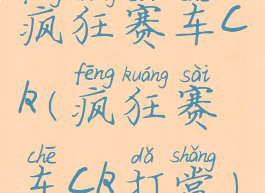 疯狂赛车C
fēng kuáng sài
R(疯狂赛
chē dǎ shǎng
车CR打赏)